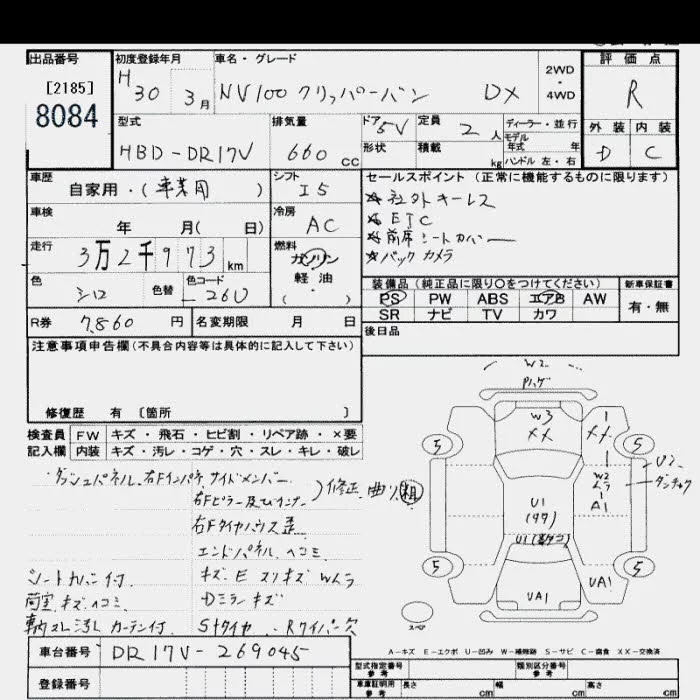 出品番号
[2185]
8084
初度登録年月
H 30 3月
車名・グレード
NV100 クリッパーバン DX
2WD
・
4WD
評価点
R
型式
HBD-DR17V
排気量
660 cc
ドア 5V
形状
定員 2人
積載 kg
ディーラー・並行
モデル
年式 年
ハンドル 左・右
外装 内装
D C
車歴
自家用・(事業用)
シフト
I5
車検
年 月( 日)
冷房
AC
走行
3万2千973km
燃料
ガソリン
軽油
( )
色
シロ
色替
色コード
26U
R券 7,860円
名変期限 月 日
セールスポイント(正常に機能するものに限ります)
☆社外キーレス
☆ETC
☆前席シートカバー
☆バックカメラ
装備品(純正品に限り○をつけてください)
PS PW ABS エアB AW
SR ナビ TV カワ
新車保証書
有・無
後日品
注意事項申告欄(不具合内容等は具体的に記入して下さい)
修復歴 有 〔箇所 〕
検査員 FW キズ・飛石・ヒビ割・リペア跡・×要
記入欄 内装 キズ・汚レ・コゲ・穴・スレ・キレ・破レ
ダッシュパネル、右Fインパネ、サイドメンバー
右Fピラー及びインナー
)修正、曲り 粗
右Fタイヤハウス歪
エンドパネル、ヘコミ
シートカバー付
キズ・E スリキズ Wムラ
荷室キズヘコミ
Dミラーキズ
車内スレ汚レ カーテン付
Sタイヤ
Rワイパー穴
W2
W3
XX
1
XX
5
5
W2
ムラ
A1
U2
U1
U1
5
5
UA1
UA1
スペア
A-キズ E-エクボ U-凹み W-補修跡 S-サビ C-腐食 XX-交換済
車台番号 DR17V-269045
登録番号
型式指定番号
参考
類別区分番号
参考
車庫証明用
参考
長さ cm
幅 cm
高さ cm